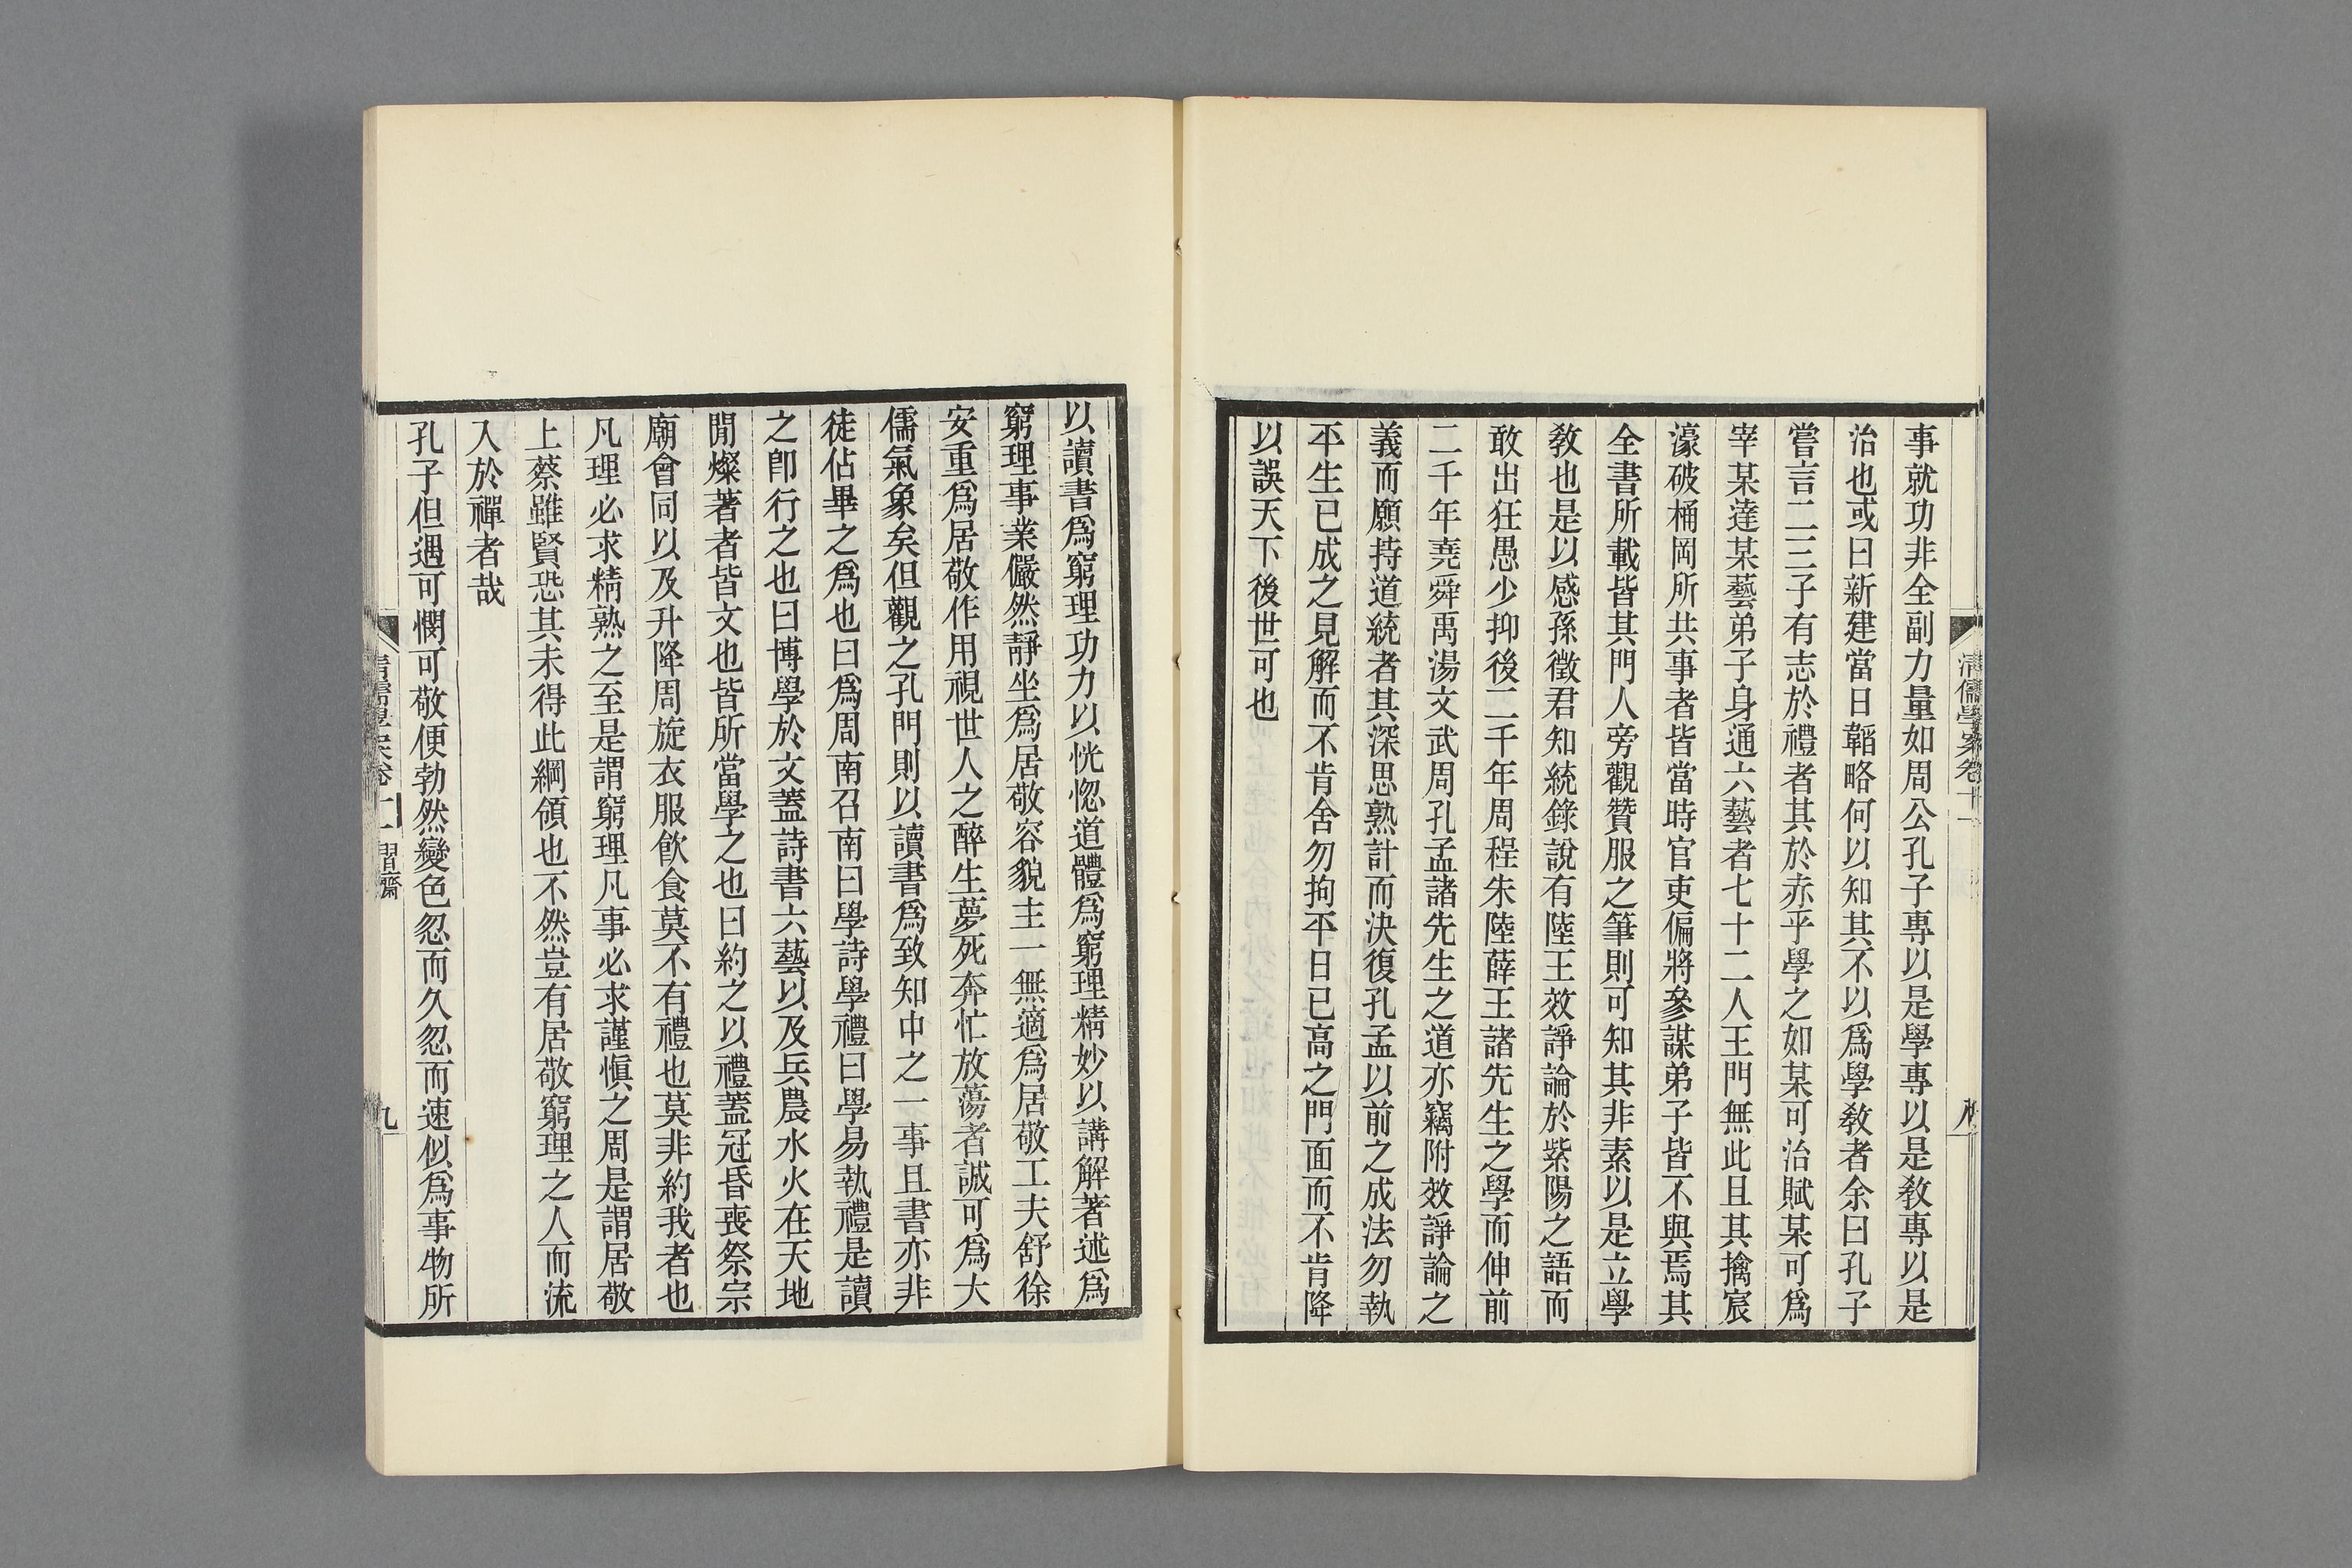 清儒學案卷十一
事就功非全副力量如周公孔子專以是學專以是敎專以是
治也或曰新建當日韜略何以知其不以爲學敎者余曰孔子
嘗言二三子有志於禮者其於赤乎學之如某可治賦某可爲
宰某達某藝弟子身通六藝者七十二人王門無此且其擒宸
濠破桶岡所共事者皆當時官吏偏將參謀弟子皆不與焉其
全書所載皆其門人旁觀贊服之筆則可知其非素以是立學
敎也是以感孫徵君知統錄說有陸王效諍論於紫陽之語而
敢出狂愚少抑後二千年周程朱陸薛王諸先生之學而伸前
二千年堯舜禹湯文武周孔孟諸先生之道亦竊附效諍論之
義而願持道統者其深思熟計而決復孔孟以前之成法勿執
平生已成之見解而不肯舍勿拘平日已高之門面而不肯降
以誤天下後世可也
以讀書爲窮理功力以恍惚道體爲窮理精妙以講解著述爲
窮理事業儼然靜坐爲居敬容貌主一無適爲居敬工夫舒徐
安重爲居敬作用視世人之醉生夢死奔忙放蕩者誠可爲大
儒氣象矣但觀之孔門則以讀書爲致知中之一事且書亦非
徒佔畢之爲也曰爲周南召南曰學詩學禮曰學易執禮是讀
之卽行之也曰博學於文蓋詩書六藝以及兵農水火在天地
閒燦著者皆文也皆所當學之也曰約之以禮蓋冠昏喪祭宗
廟會同以及升降周旋衣服飮食莫不有禮也莫非約我者也
凡理必求精熟之至是謂窮理凡事必求謹愼之周是謂居敬
上蔡雖賢恐其未得此綱領也不然豈有居敬窮理之人而流
入於禪者哉
孔子但遇可憫可敬便勃然變色忽而久忽而速似爲事物所
清儒學案卷十一 習齋
九